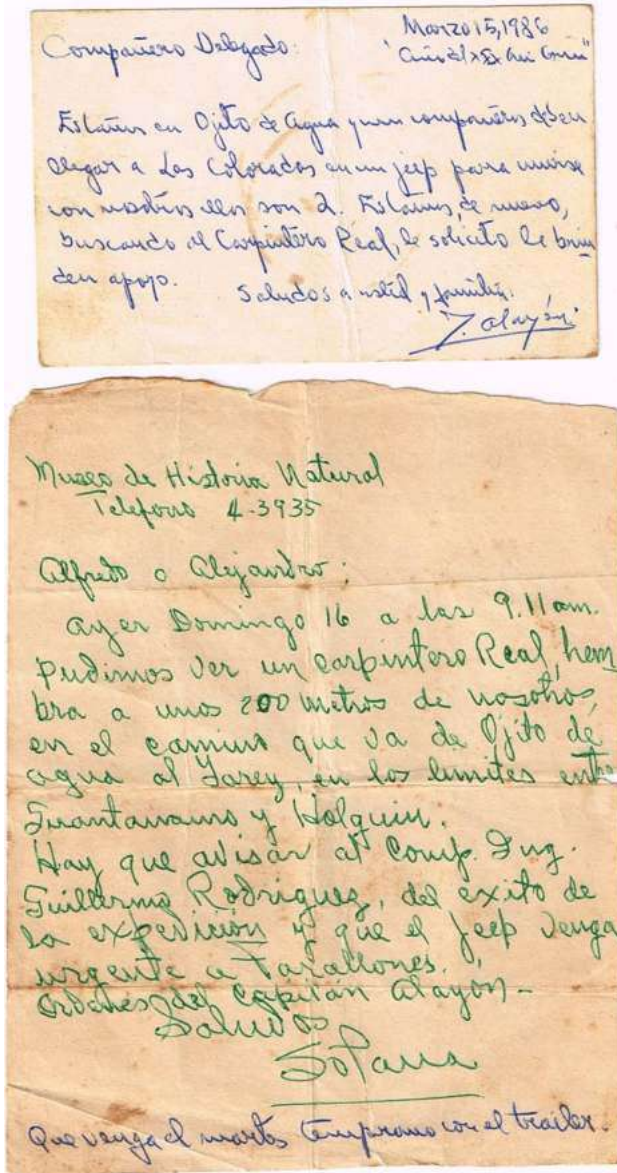 Compañero Delegado:
Marzo 15, 1986
"Año del XXX
Estamos en Ojito de Agua y unos compañeros deben
llegar a Los Colorados en un jeep para unirse
con nosotros ellos son 2. Estamos, de nuevo,
buscando al Carpintero Real, le solicito le brin
den apoyo.
Saludos a usted y familia.
Alayón
Museo de Historia Natural
Telefono 4-3935
Alfredo o Alejandro;
Ayer Domingo 16 a las 9.11 am.
pudimos ver un carpintero Real, hem
bra a unos 200 metros de nosotros,
en el camino que va de Ojito de
agua al Yarey, en los limites entre
Guantanamo y Holguin.
Hay que avisar al Comp. Ing.
Guillermo Rodriguez, del exito de
la expedición y que el Jeep venga
urgente a Farallones.
Ordenes del Capitán Alayón -
Saludos
Solana
Que venga el martes temprano con el trailer.